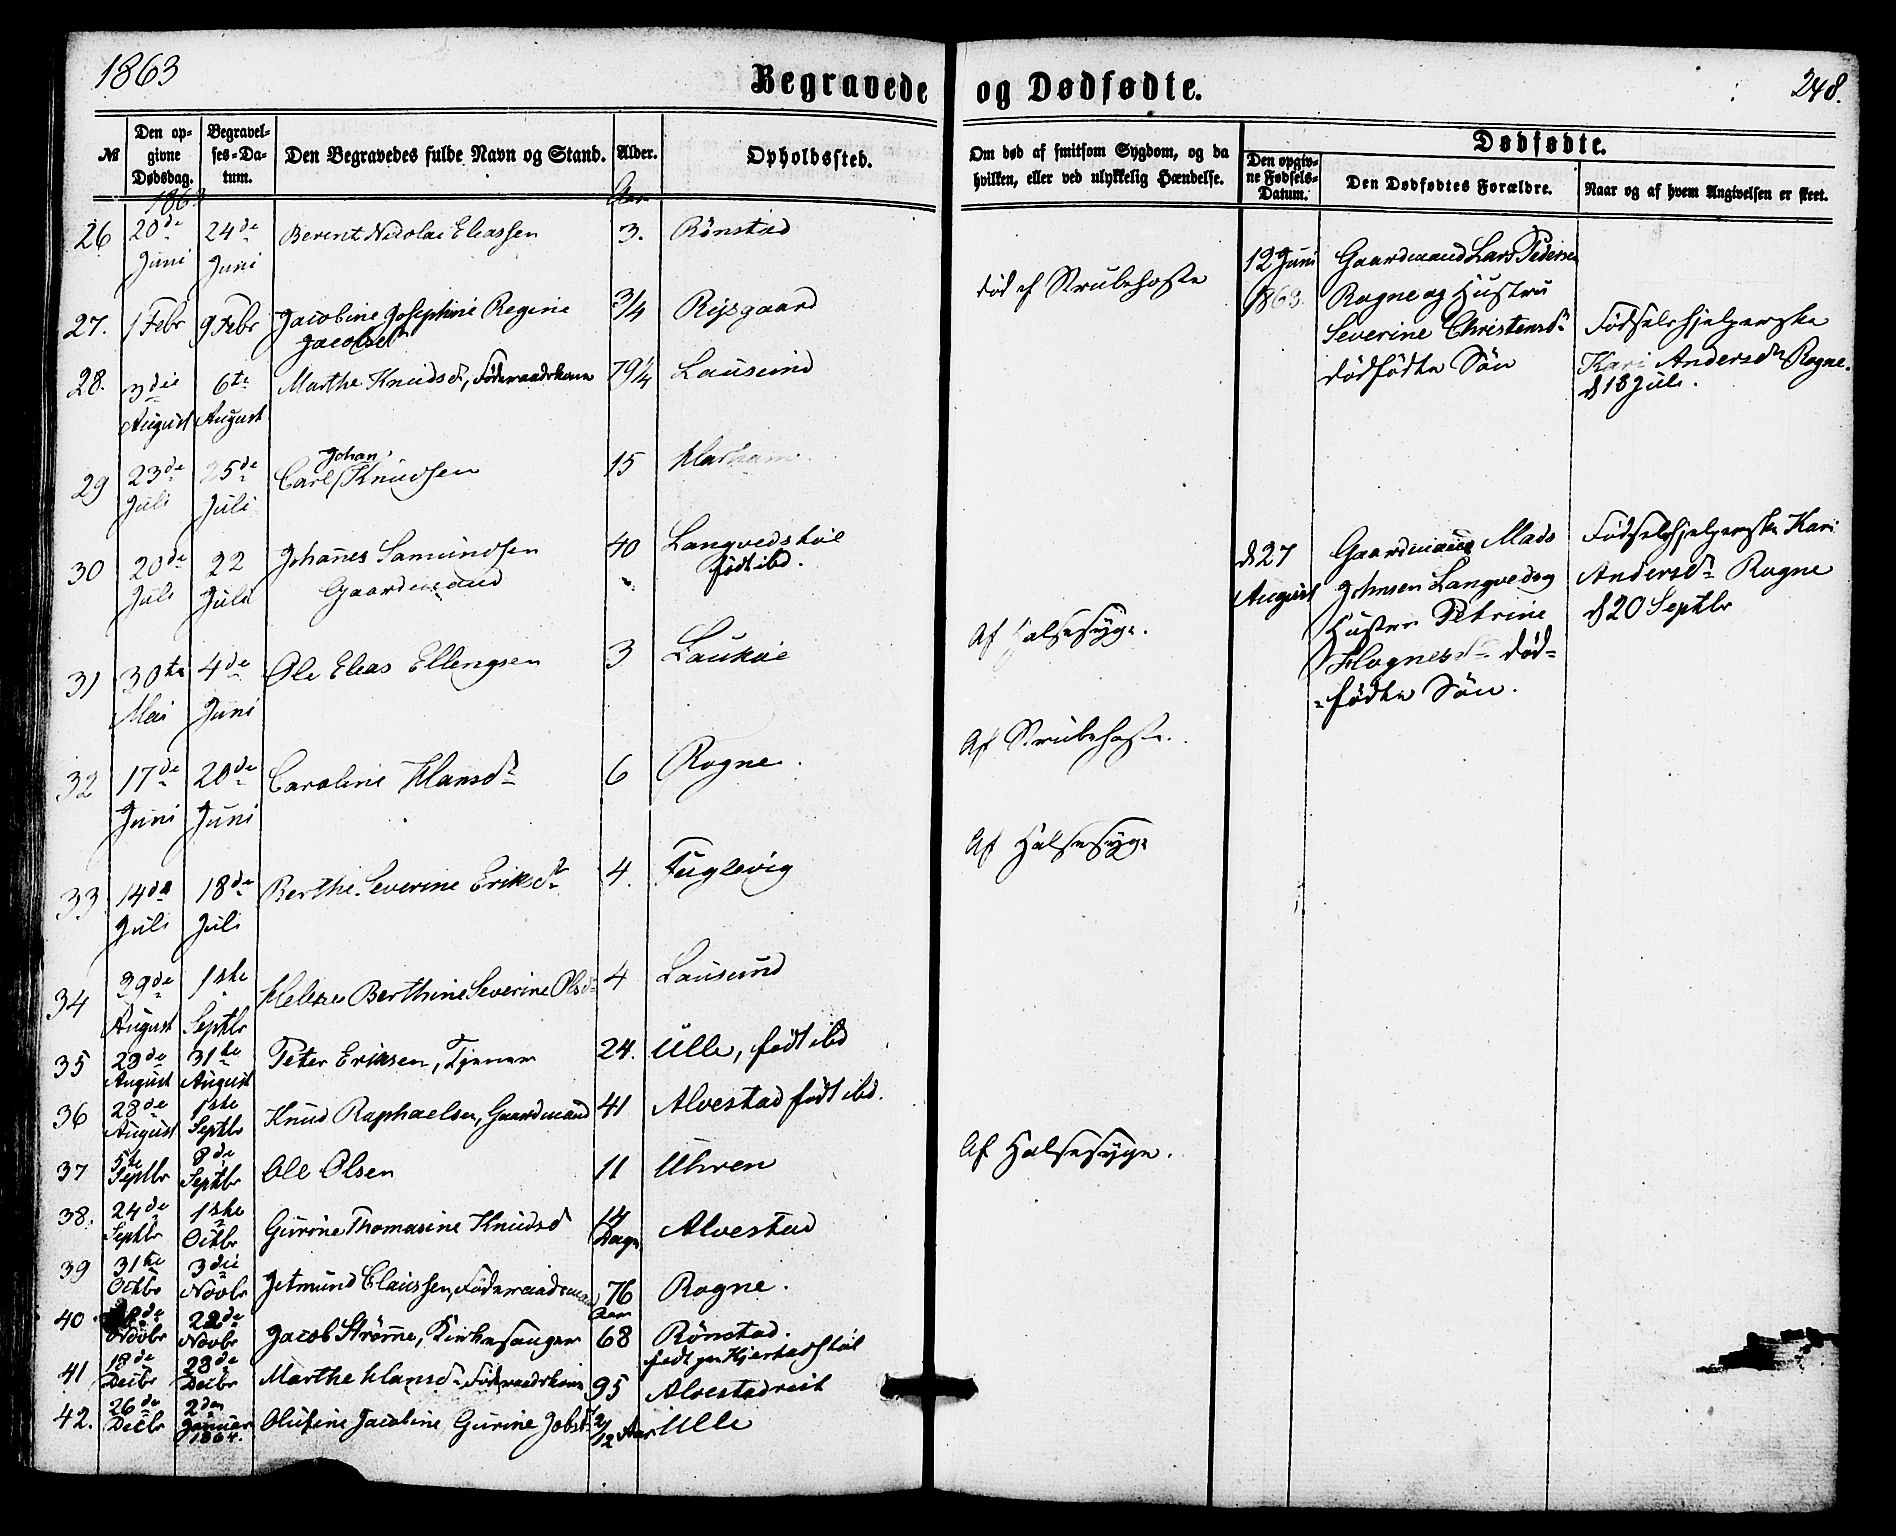 1863
Begravede og Dødfødte.
248.
№
Den op-
givne
Dødsdag.
Begravel-
ses-Da-
tum.
Den Begravedes fulde Navn og Stand.
Alder.
Opholdssted.
Om død af smitsom Sygdom, og da
hvilken, eller ved ulykkelig Hændelse.
Dødfødte.
Den opgiv-
ne Fødsels-
Datum.
Den Dødfødtes Forældre.
Naar og af hvem Angivelsen er skeet.
1863
Aar
26 20de Juni 24de Juni Berent Nicolai Eleassen 3. Rönstad
27. 1 Febr 9 Febr Jacobine Josephine Regine Jacobsd 3/4 Rijsgaard død af Strubehoste
28. 3die August 6te August Marthe Knudsdr, Föderaadskone 79 1/4 Lausund
29 23de Juli 25de Juli Carl Johan Knudsen 15 Harham
30 20de Juli 22 Juli Johanes Samundsen Gaardmand 40 Langvedstöl født ibd.
31 30te Mai 4de Juni Ole Eleas Ellengsen 3 Laukøe Af Halsesyge.
32 17de Juni 20de Juni Caroline Hansdr 6 Rogne. Af Strubehoste.
33. 14de Juli 18de Juli Berthe Severine Eriksdr 4. Fuglevig Af Halsesyge
34 39de August 1ste Septbr Helene Berthine Severine Olsdr 4 Lausund
35 29de August 31te August Peter Eriksen, Tjener 24. Ulle, født ibd
36 28de August 1ste Septbr Knud Raphaelsen, Gaardmand 41 Alvestad født ibd.
37 5te Septbr 8de Septbr Ole Olsen 11 Uhren Af Halsesyge.
38. 24de Septbr 1ste Octbr Gurine Thomasine Knudsd 14 Dage Alvestad
39 31te Octbr 3die Novbr Jetmund Claussen, Föderaadsmand 76 Aar Rogne.
40. Novbr 22de Novbr Jacob Strømme, Kirkesanger 68 Rönstad. født paa Hjerstadstöl
41 18de Decbr 28de Decbr Marthe Hansdr Föderaadskone 95 Alvestadreit
42. 26de Decbr 2den Januar 1864. Olufine Jacobine Gurine Jobsd 2/12 Aar Ulle
12 Juni
1863.
Gaardmand Lars Pedersen
Rogne og Hustru
Severine Christensdr
dødfødte Søn
Fødselshjelperske
Kari Andersdr Rogne.
d 18 Juli.
d 27
August
Gaardmand Mads
Johnsen Langved og
Hustru Petrine
Hognesdr død-
-fødte Søn.
Fødselshjelperske Kari
Andersdr Rogne
d 20 Septbr